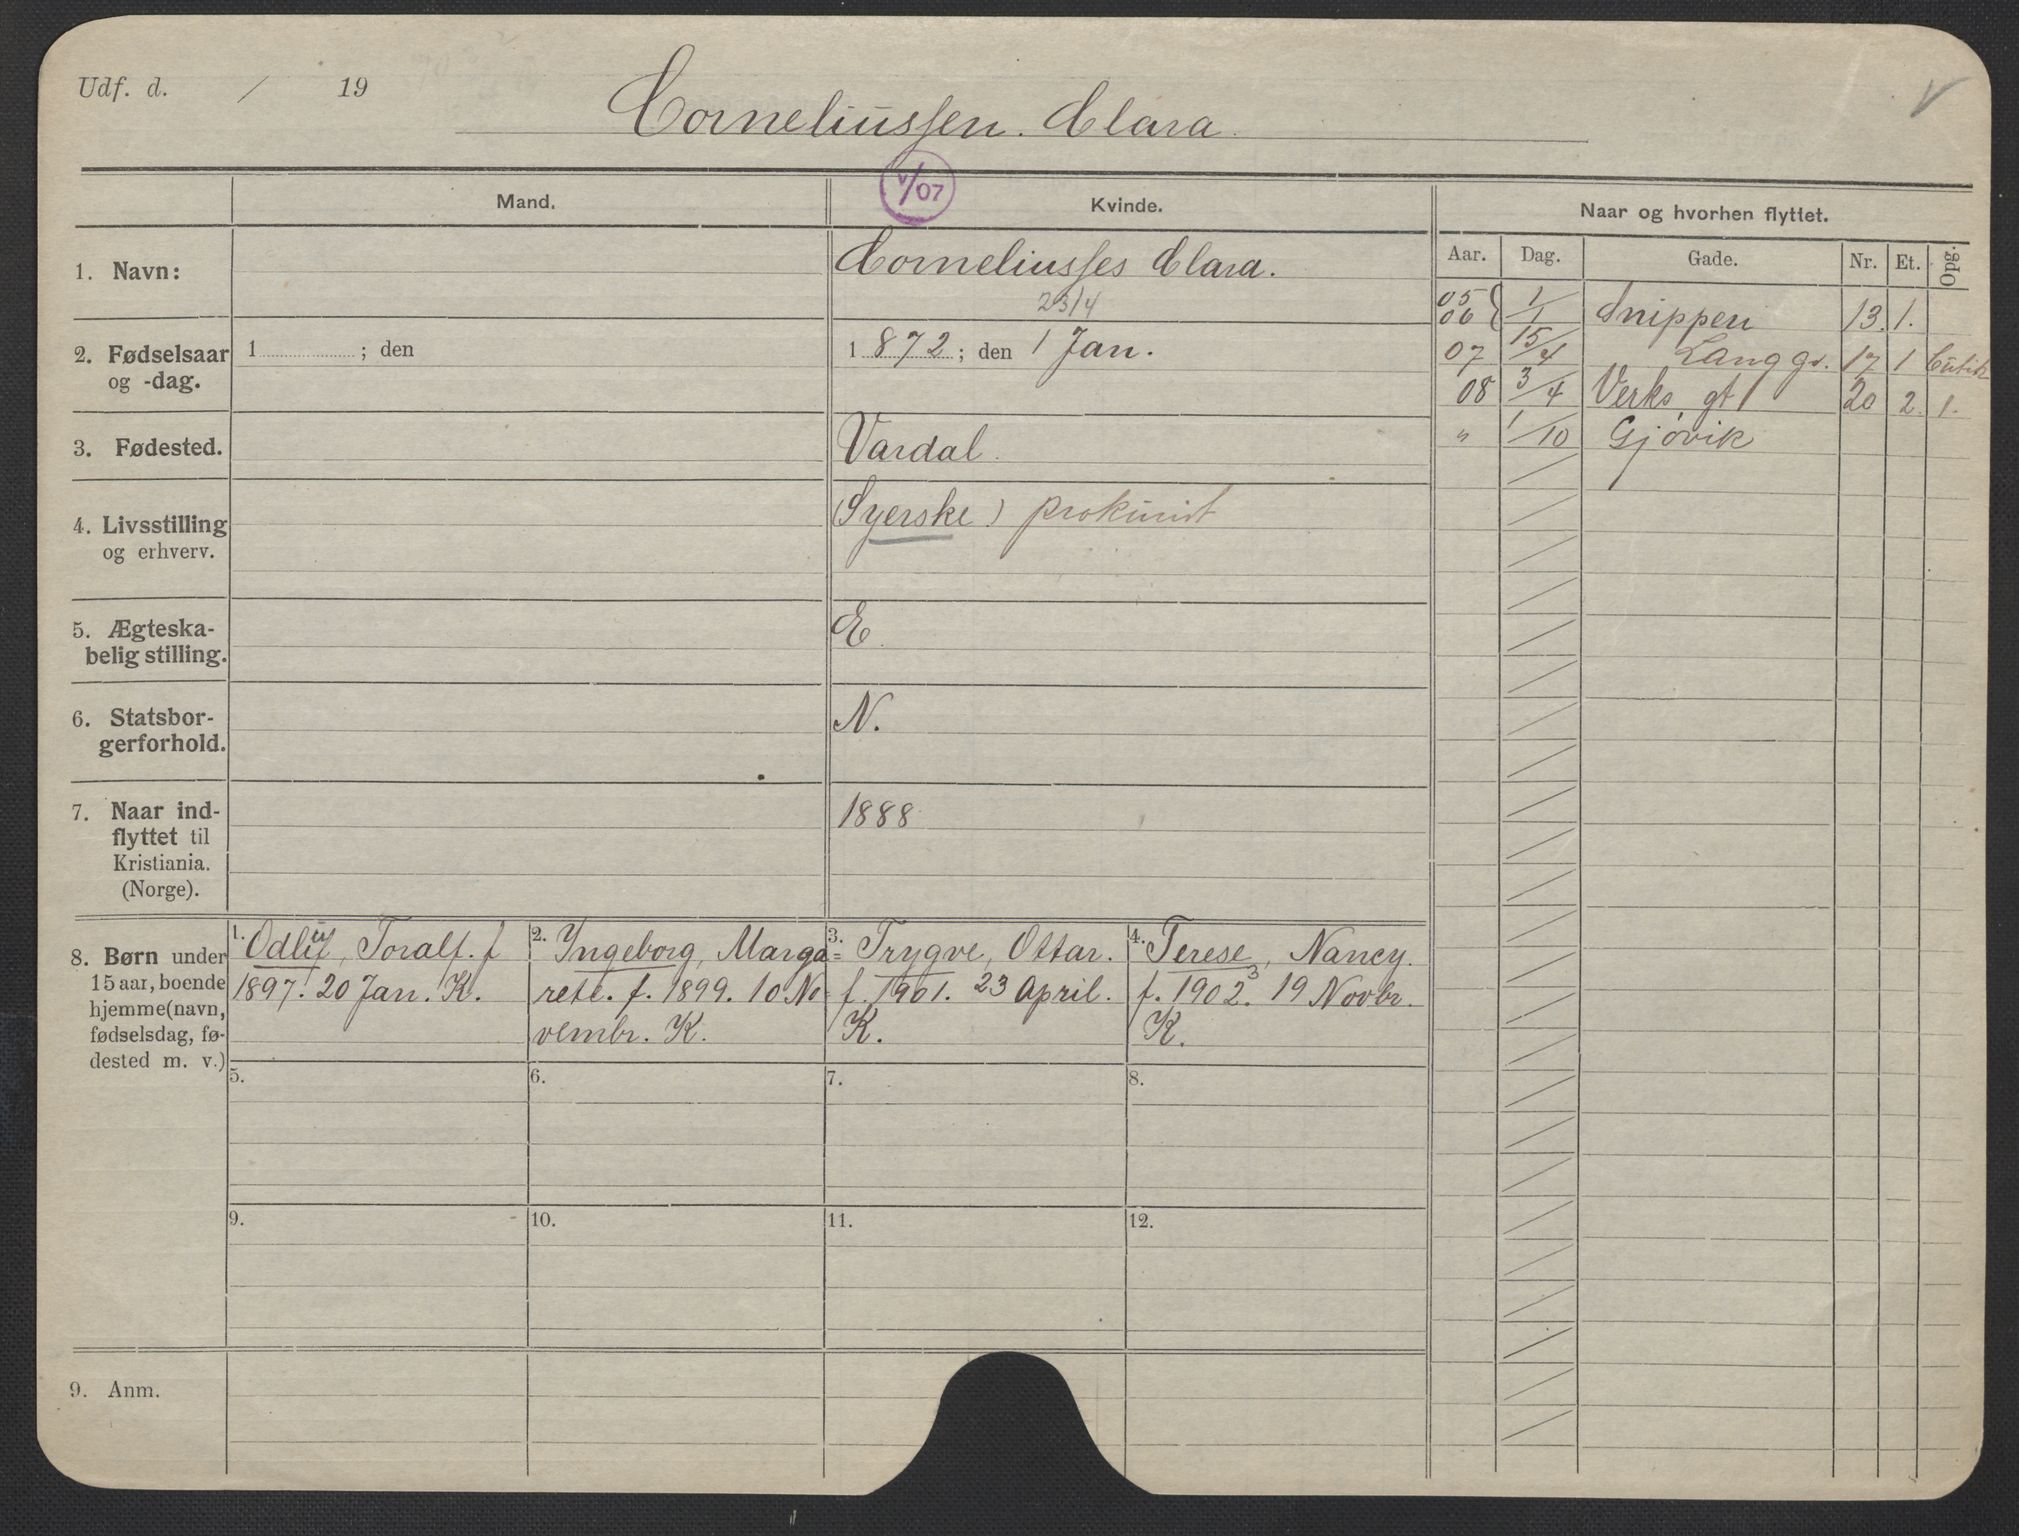 Udf. d. / 19
Corneliussen. Clara.
V
V/07
Mand.
Kvinde.
Naar og hvorhen flyttet.
Aar. Dag. Gade. Nr. Et. Opg.
1. Navn:
Corneliusses Clara.
23/4
05 06 { 1/1 Snippen 13. 1.
07 15/4 Langgt. 17 1
08 3/4 Verks gt 20 2. 1.
" 1/10 Gjøvik
2. Fødselsaar og -dag.
1 ; den
1 872 ; den 1 Jan.
3. Fødested.
Vardal.
4. Livsstilling og erhverv.
(Syerske) prokurist
5. Ægteska-
belig stilling.
E
6. Statsbor-
gerforhold.
N.
7. Naar ind-
flyttet til
Kristiania.
(Norge).
1888
8. Børn under
15 aar, boende
hjemme (navn,
fødselsdag, fø-
dested m. v.)
1. Toralf. f
1897. 20 Jan. K.
2. Yngeborg, Marga=
rete. f. 1899. 10 No
vembr. K.
3. Trygve, Ottar.
f. 1901. 23 April.
K.
4. Terese, Nancy.
f. 1902. 3 19 Novbr.
K.
5.
6.
7.
8.
9.
10.
11.
12.
9. Anm.